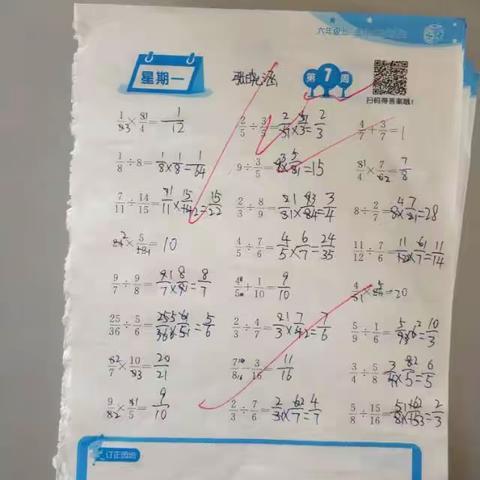 六年级上
星期一
张晓涵
第1周
扫码得答案哦!
1/3 × 1/4 = 1/12
2/5 ÷ 3/5 = 2/5 × 5/3 = 2/3
4/7 + 3/7 = 1
1/8 ÷ 8 = 1/8 × 1/8 = 1/64
9 ÷ 3/5 = 9 × 5/3 = 15
7/11 ÷ 14/15 = 7/11 × 15/14 = 15/22
2/3 ÷ 8/9 = 2/3 × 9/8 = 3/4
8 ÷ 2/7 = 8 × 7/2 = 28
4/5 ÷ 7/6 = 4/5 × 6/7 = 24/35
11/12 ÷ 7/6 = 11/12 × 6/7 = 11/14
9/7 ÷ 9/8 = 9/7 × 8/9 = 8/7
4/5 + 1/10 = 9/10
25/36 ÷ 5/6 = 25/36 × 6/5 = 5/6
2/3 ÷ 4/7 = 2/3 × 7/4 = 7/6
5/9 ÷ 1/6 = 5/9 × 6 = 10/3
7/8 - 3/16 = 11/16
3/4 ÷ 5/8 = 3/4 × 8/5 = 6/5
2/3 ÷ 7/6 = 2/3 × 6/7 = 4/7
5/8 ÷ 15/16 = 5/8 × 16/15 = 2/3
订正园地